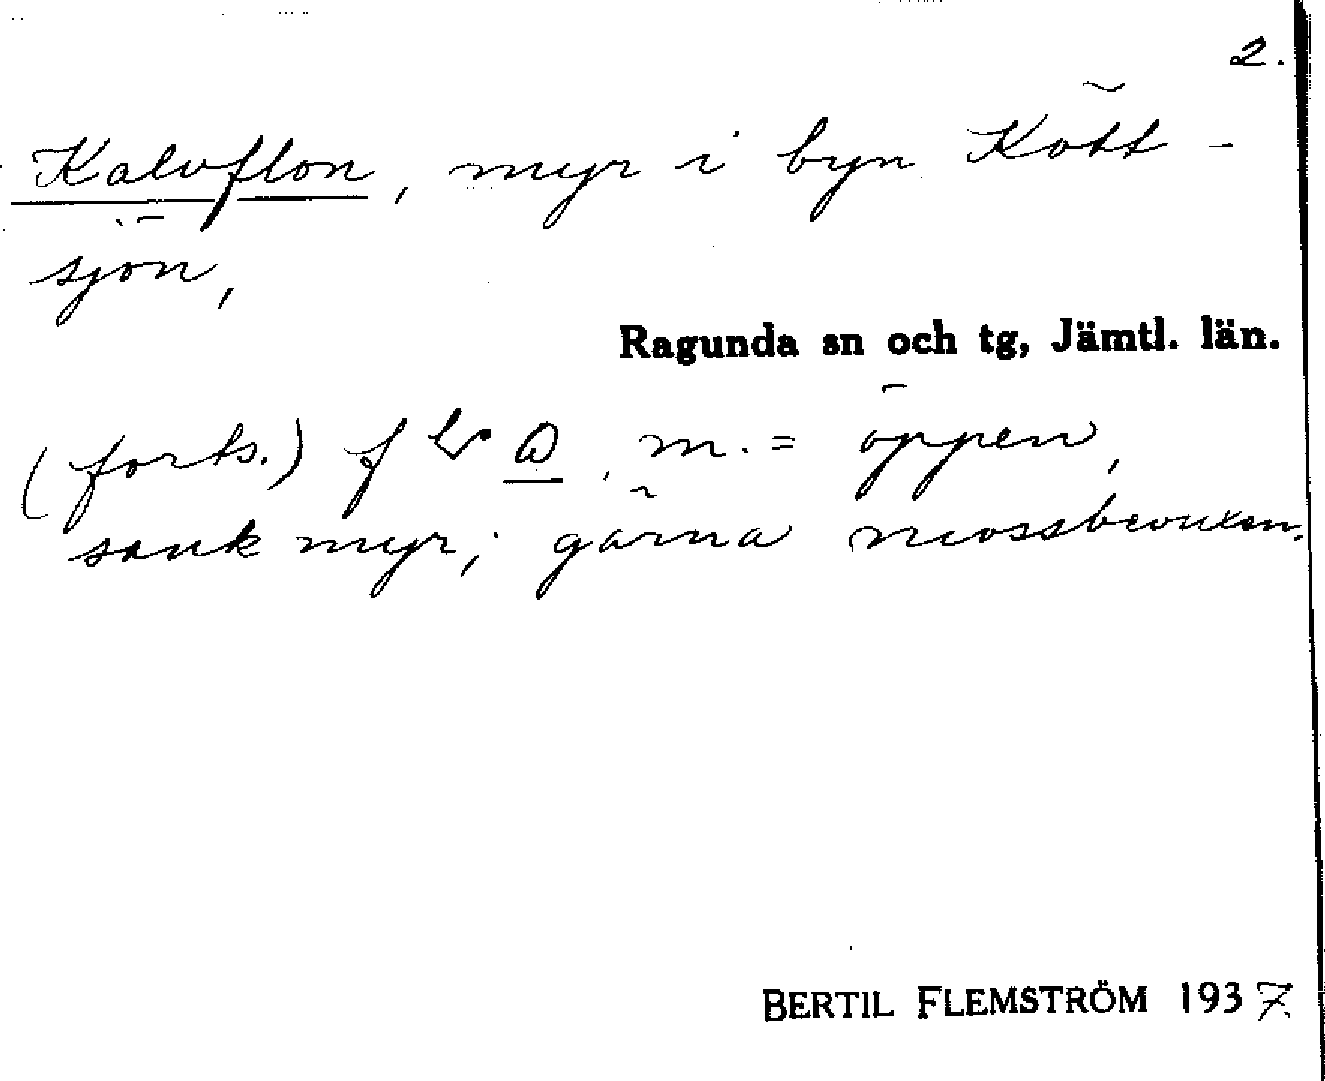 2.
Kalvflon, myr i byn Kött-
sjön,
Ragunda sn och tg, Jämtl. län.
(forts.) m. = öppen,
sank myr; gärna mossbevuxen.
BERTIL FLEMSTRÖM 1937.